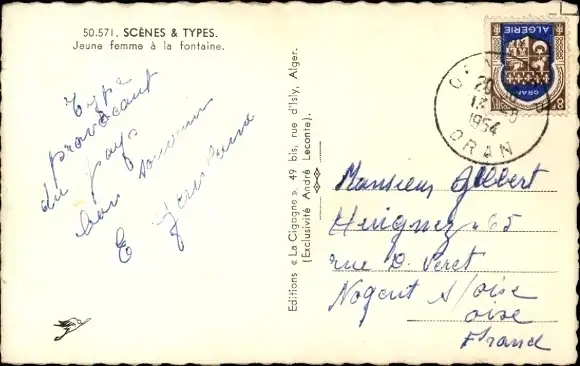 50.571. SCÈNES & TYPES.
Jeune femme à la fontaine.
Type
provocant
du pays
bon souvenir
E
Editions « La Cigogne », 49 bis, rue d'Isly, Alger.
(Exclusivité André Leconte).
ALGERIE
ORAN
8F
20
13
1954
ORAN
Monsieur Gilbert
65
rue D. Peret
Nogent s/oise
oise
France